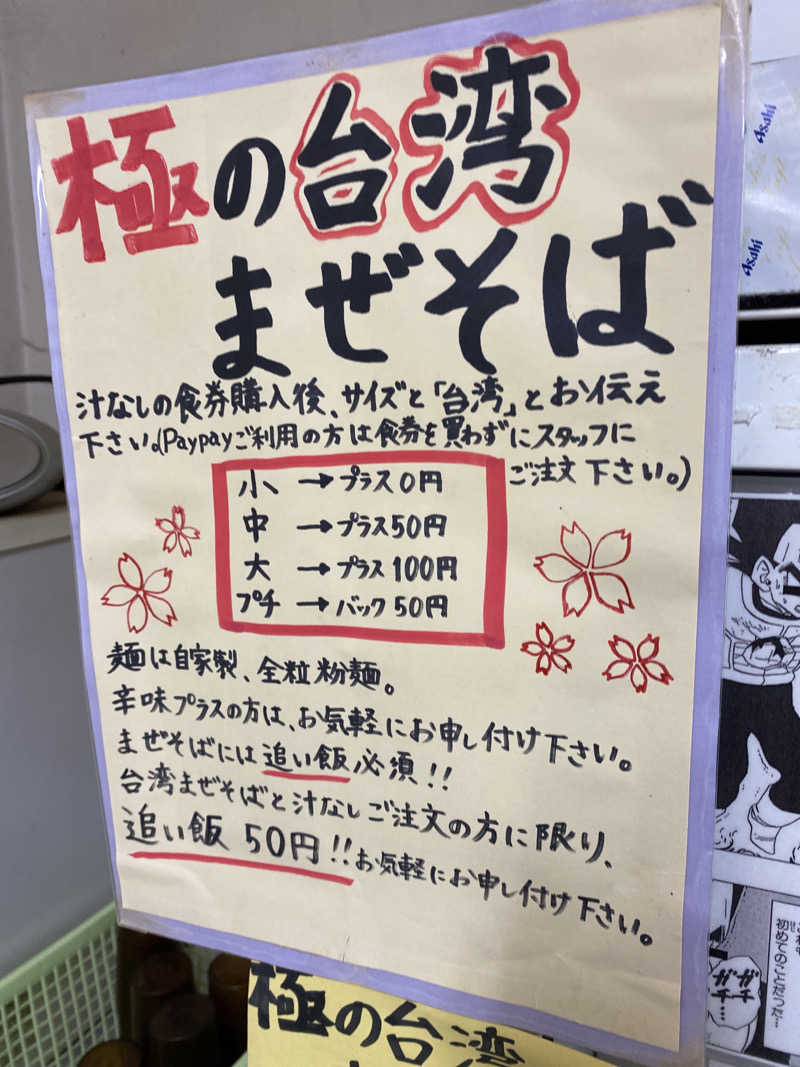 極の台湾
まぜそば
汁なしの食券購入後、サイズと「台湾」とお伝え
下さい。(Paypayご利用の方は食券を買わずにスタッフに
ご注文下さい。)
小→プラス0円
中→プラス50円
大→プラス100円
プチ→バック50円
麺は自家製、全粒粉麺。
辛味プラスの方は、お気軽にお申し付け下さい。
まぜそばには追い飯必須!!
台湾まぜそばと汁なしご注文の方に限り、
追い飯50円!!お気軽にお申し付け下さい。
極の台湾
Asahi
Asahi
初めてのことだった…
ガチガチ…